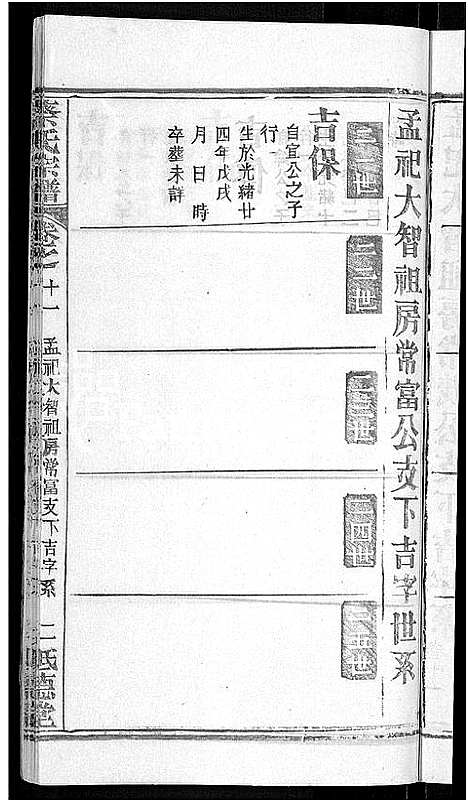 孟祀大智祖房常富公支下吉字世系
三一世
吉保
自宣公之子
行一
生於光緒廿
四年戊戌
月日時
卒塟未詳
三二世
三三世
三四世
三五世
蔡氏宗譜
卷之
十一
孟祀大智祖房常富支下吉字系
二